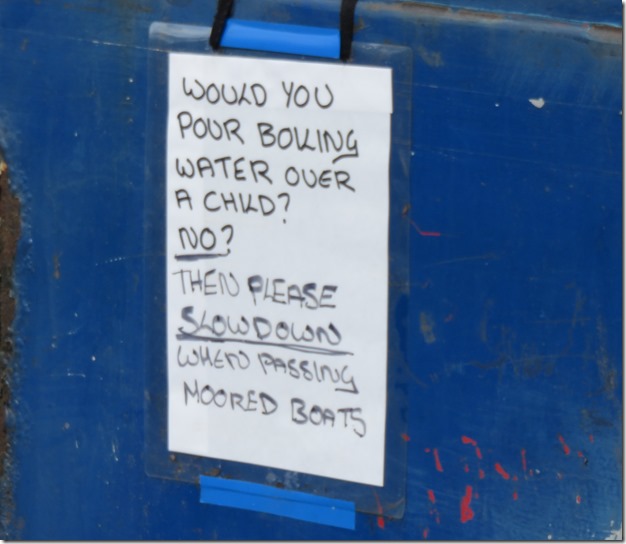 WOULD YOU
POUR BOILING
WATER OVER
A CHILD?
NO?
THEN PLEASE
SLOW DOWN
WHEN PASSING
MOORED BOATS